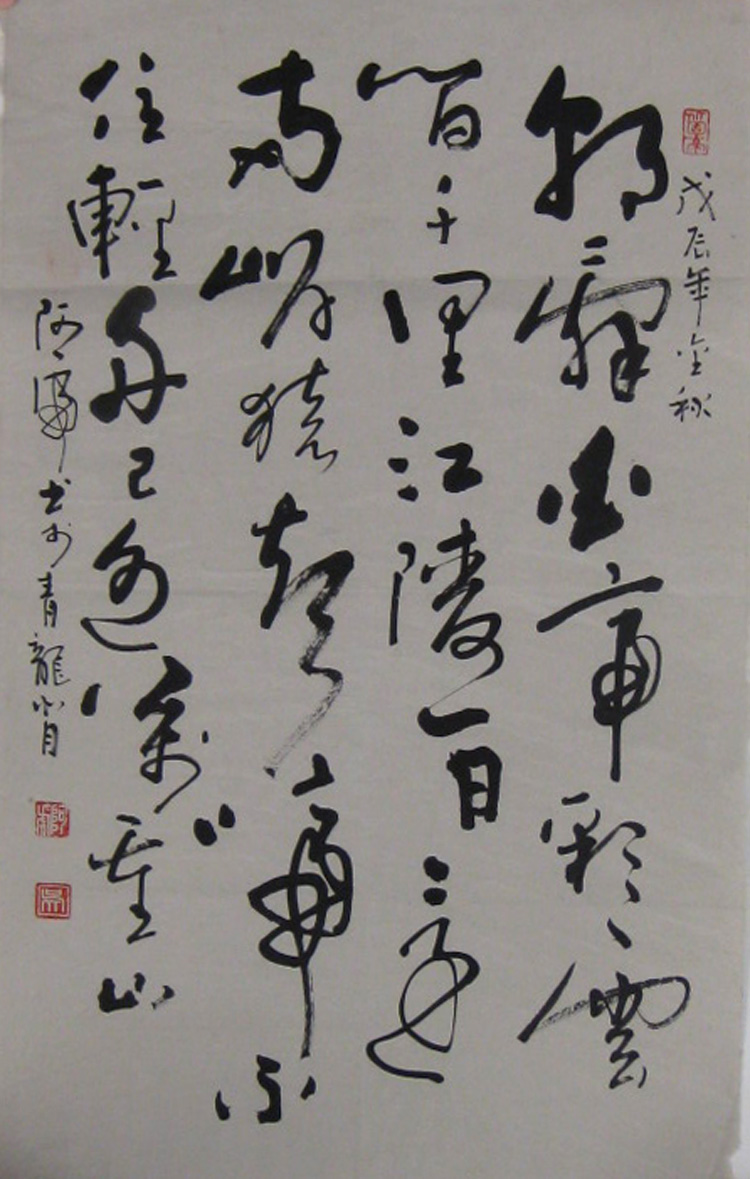 戊辰年金秋
朝辭白帝彩雲
間千里江陵一日還
兩岸猿聲啼不
住輕舟已過萬重山
阿 書於青龍